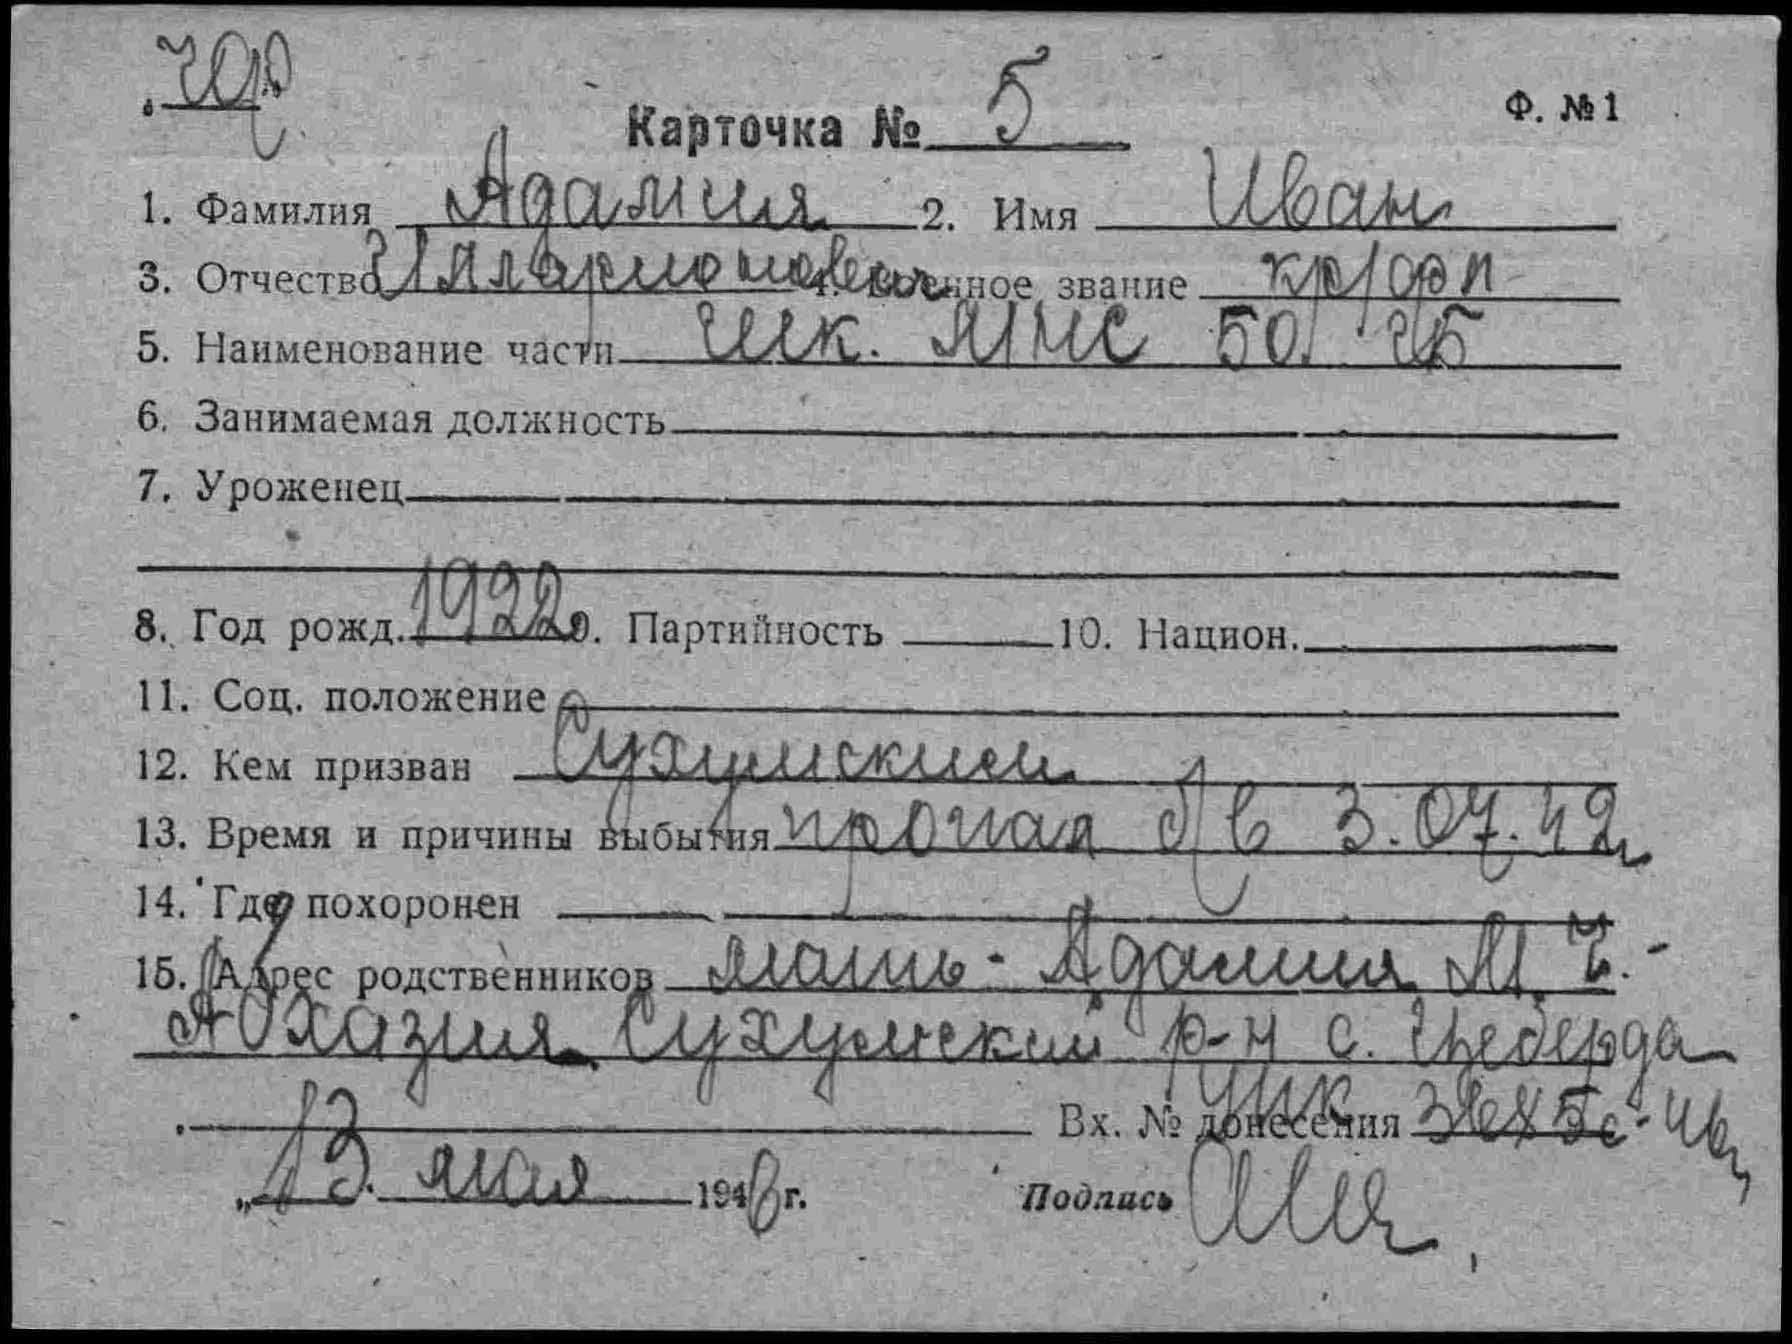 Карточка № 5 Ф. № 1
1. Фамилия Адамия 2. Имя Иван
3. Отчество Иларионович 4. Военное звание кр/фл
5. Наименование части шк. МПС 50 ЧФ
6. Занимаемая должность
7. Уроженец
8. Год рожд. 1922 9. Партийность 10. Национ.
11. Соц. положение
12. Кем призван Сухумским
13. Время и причины выбытия пропал б/в 3.07.42
14. Где похоронен
15. Адрес родственников мать - Адамия М. Г. -
Абхазия Сухумский р-н с. Цебельда
Вх. № донесения
"13. мая 1946 г. Подпись